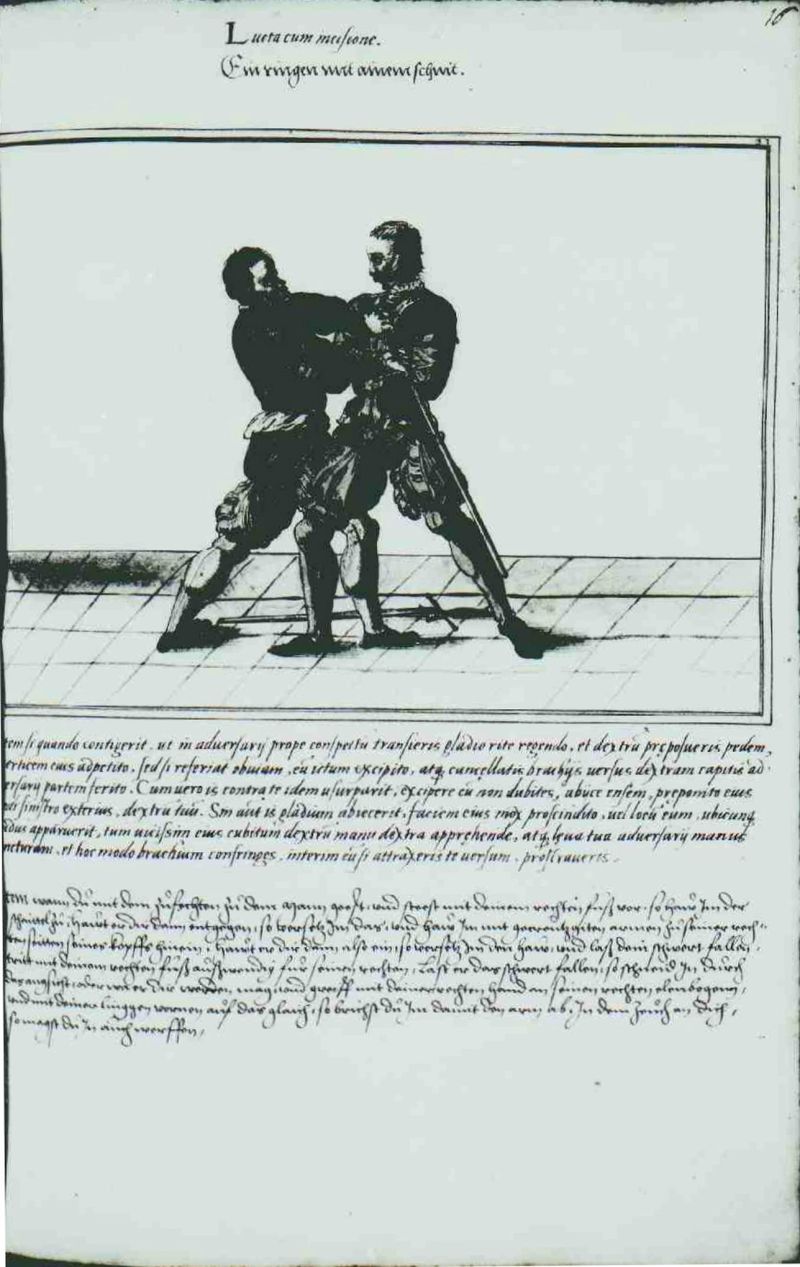 16
Lucta cum incisione.
Ein ringen mit ainem schnit.
tem si quando contigerit, ut in adversarij prope conspectu transieris gladio rite regendo, et dextrũ prępoſueris pedem,
erticem eius adpetito, sed si referiat obuiam, eũ ictum excipito, atq; cancellatis brachijs versus dextram capitis ad
ersarij partem ferito. Cum uero is contra te idem usurparit, excipere eũ non dubites, abijce ensem, preponito eius
edi sinistro exterius, dextrũ tuũ. Sin aũt is gladium abiecerit, faciem eius mox proscindito, uel locũ eum, ubicunq;
udus apparuerit, tum uicissim eius cubitum dextrũ manu dextra apprehende, atq; leua tua adversarij manus
ncturam, et hoc modo brachium confringes, interim eũ si attraxeris te versum, prostraueris.
tem wann dũ mit dem zũfechten zũ dem Mann geest, vnd steest mit deinem rechten fũß vor, so haw Im der
schaittel zũ, hawt er dir dann entgegen, so versetz Im das, vnd haw Im mit gecreutzigten armen zũ seiner rech-
ten seitten seines kopffs hinein, hawt er dir dann also ein, so versetz Im den haw, vnd laß dein schwert fallen,
tritt mit deinem rechten fũß aũßwendig fũr seinen rechten, Laßt er das schwert fallen, so schneid In dũrch
das angesicht, oder wa er dir werden mag, vnd greiff mit deiner rechten hand an seinen rechten elenbogen,
vnd mit deiner linggen vornen auf das glaich, so brichst dũ Im damit den arm ab, In dem zeuch an dich,
so magst dũ In auch werffen,